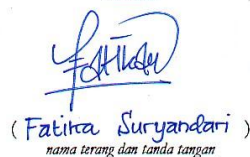 ( Fatika Suryandari )
nama terang dan tanda tangan